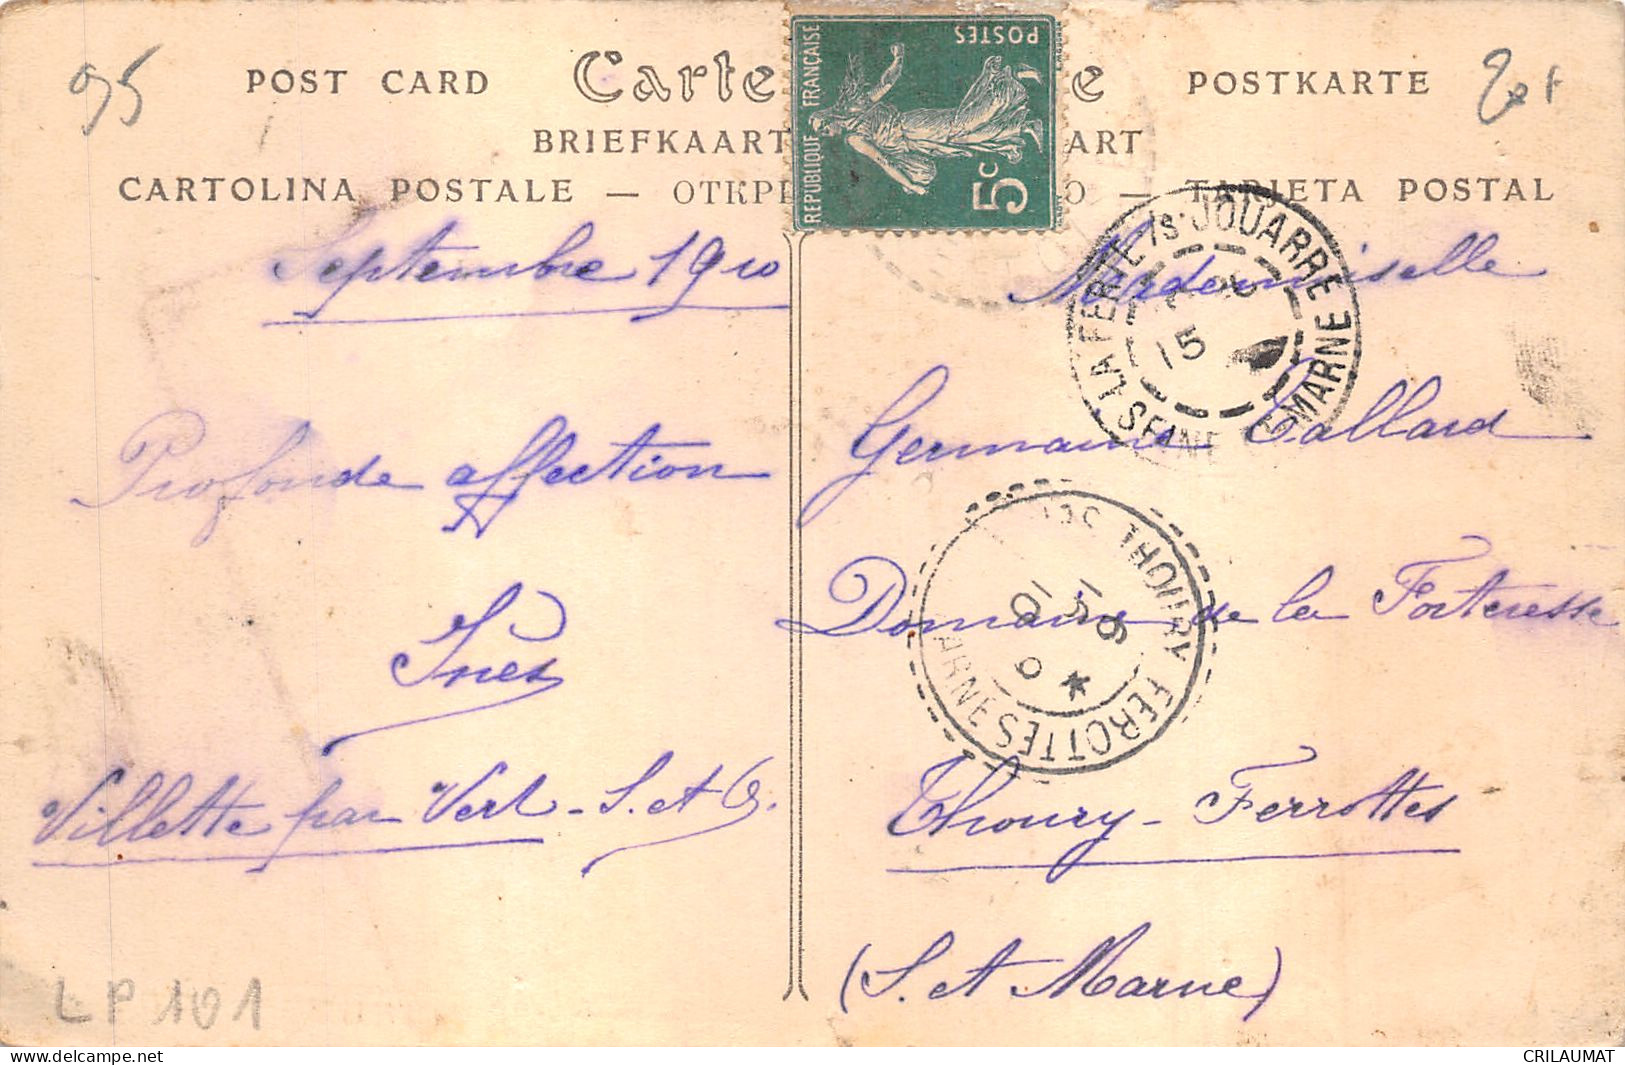 95
POST CARD Carte e POSTKARTE
BRIEFKAART ART
CARTOLINA POSTALE — ОТКРЫ О — TARJETA POSTAL
POSTES
REPUBLIQUE FRANÇAISE
5c
LA FERTE-/s-JOUARRE
SEINE & MARNE
15
Septembre 1910
Profonde affection
Inès
Villette par Vert - S. et O.
Mademoiselle
Germaine Tallard
Domaine de la Forteresse
Thoury - Ferrottes
(S. et Marne)
THOURY FEROTTES
ARNE
15 - 9
10
LP 101
www.delcampe.net
CRILAUMAT